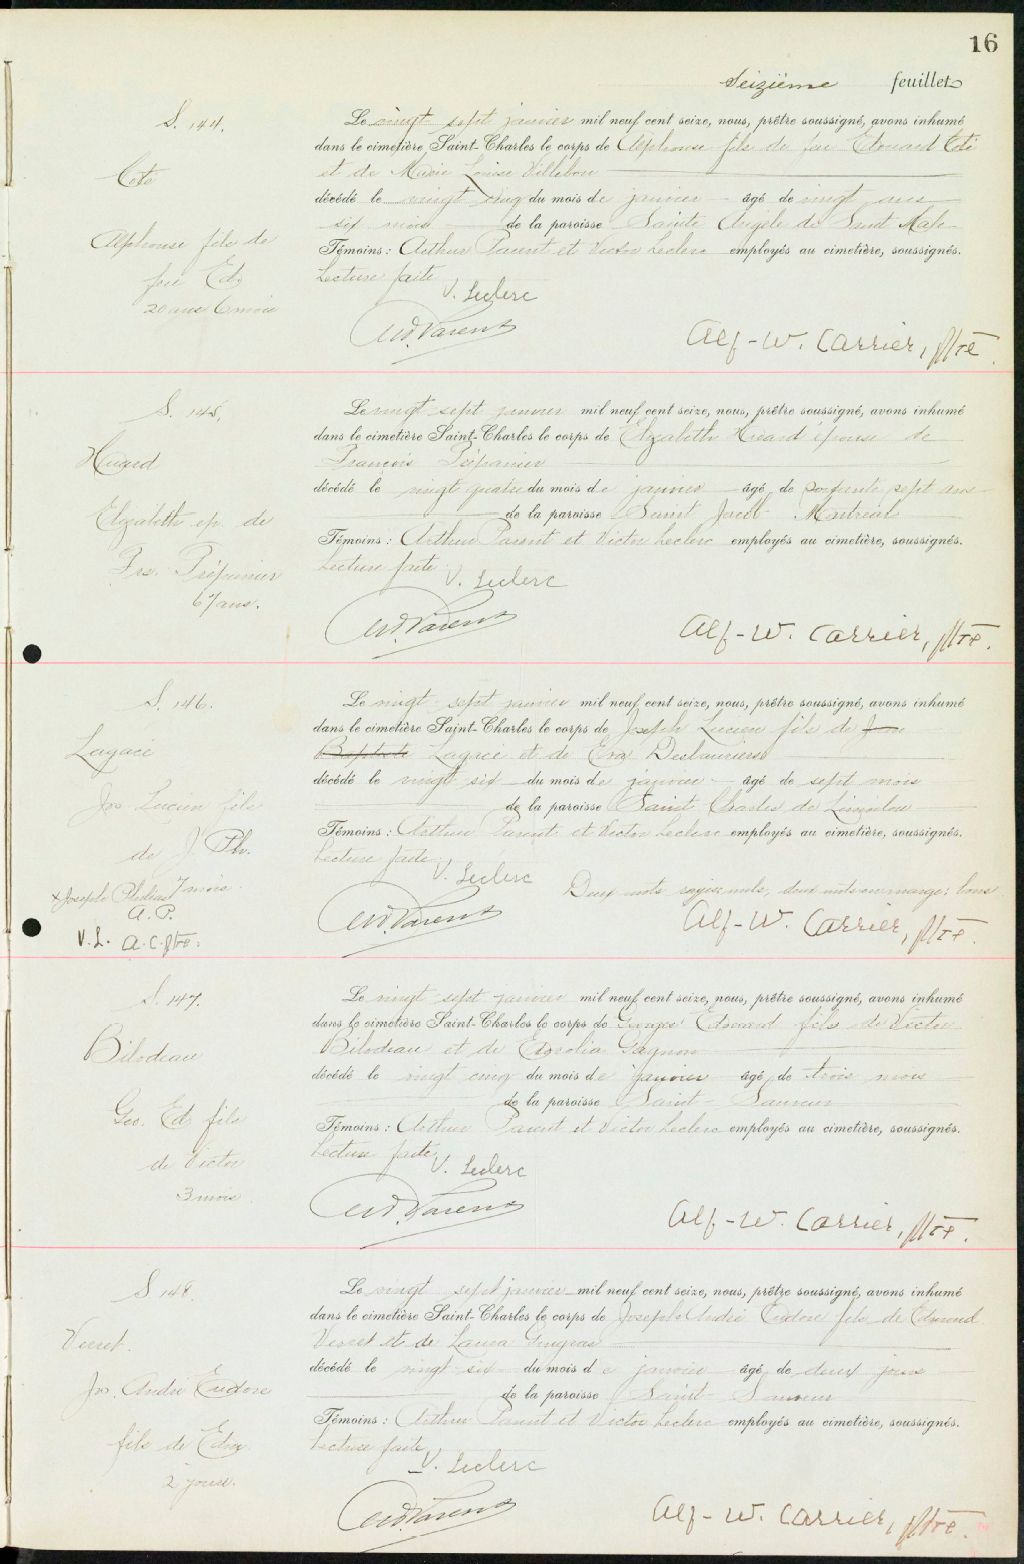 16
Seizième feuillet
S. 144.
Cote
Alphonse fils de
feu Ed.
20 ans 6 mois
Le vingt sept janvier mil neuf cent seize, nous, prêtre soussigné, avons inhumé
dans le cimetière Saint-Charles le corps de Alphonse fils de feu Edouard Coté
et de Marie Louise Villebon
décédé le vingt cinq du mois de janvier âgé de vingt ans
six mois de la paroisse Sainte Angèle de Saint Malo
Témoins : Arthur Parent et Victor Leclerc employés au cimetière, soussignés.
Lecture faite
V. Leclerc
Ard. Parent
Alf-W. Carrier, ptre.
S. 145.
Huard
Elizabeth ép. de
Frs. Trépanier
67 ans.
Le vingt sept janvier mil neuf cent seize, nous, prêtre soussigné, avons inhumé
dans le cimetière Saint-Charles le corps de Elizabeth Huard épouse de
François Trépanier
décédé le vingt quatre du mois de janvier âgé de soixante sept ans
de la paroisse Saint Jacob Montréal
Témoins : Arthur Parent et Victor Leclerc employés au cimetière, soussignés.
Lecture faite
V. Leclerc
Ard. Parent
Alf-W. Carrier, ptre.
S. 146.
Lagacé
Jos Lucien fils
de J. Ph.
7 mois.
x Joseph Philias
A. P.
V. L. A. C. ptre.
Le vingt sept janvier mil neuf cent seize, nous, prêtre soussigné, avons inhumé
dans le cimetière Saint-Charles le corps de Joseph Lucien fils de
Baptiste Lagacé et de Eva Deslauriers
décédé le vingt six du mois de janvier âgé de sept mois
de la paroisse Saint Charles de Limoilou
Témoins : Arthur Parent et Victor Leclerc employés au cimetière, soussignés.
Lecture faite
V. Leclerc
Deux mots rayés nuls, deux mots en marge: bons
Ard. Parent
Alf-W. Carrier, ptre.
S. 147.
Bilodeau
Geo. Ed fils
de Victor
3 mois
Le vingt sept janvier mil neuf cent seize, nous, prêtre soussigné, avons inhumé
dans le cimetière Saint-Charles le corps de Georges Edmond fils de Victor
Bilodeau et de Gagnon
décédé le vingt cinq du mois de janvier âgé de trois mois
de la paroisse Saint-Sauveur
Témoins : Arthur Parent et Victor Leclerc employés au cimetière, soussignés.
Lecture faite
V. Leclerc
Ard. Parent
Alf-W. Carrier, ptre.
S 148.
Verret
Jos. André Eudore
fils de Edm
2 jours.
Le vingt sept janvier mil neuf cent seize, nous, prêtre soussigné, avons inhumé
dans le cimetière Saint-Charles le corps de Joseph André Eudore fils de Edmond
Verret et de Laura Gingras
décédé le vingt six du mois de janvier âgé de deux jours
de la paroisse Saint-Sauveur
Témoins : Arthur Parent et Victor Leclerc employés au cimetière, soussignés.
Lecture faite
V. Leclerc
Ard. Parent
Alf-W. Carrier, ptre.